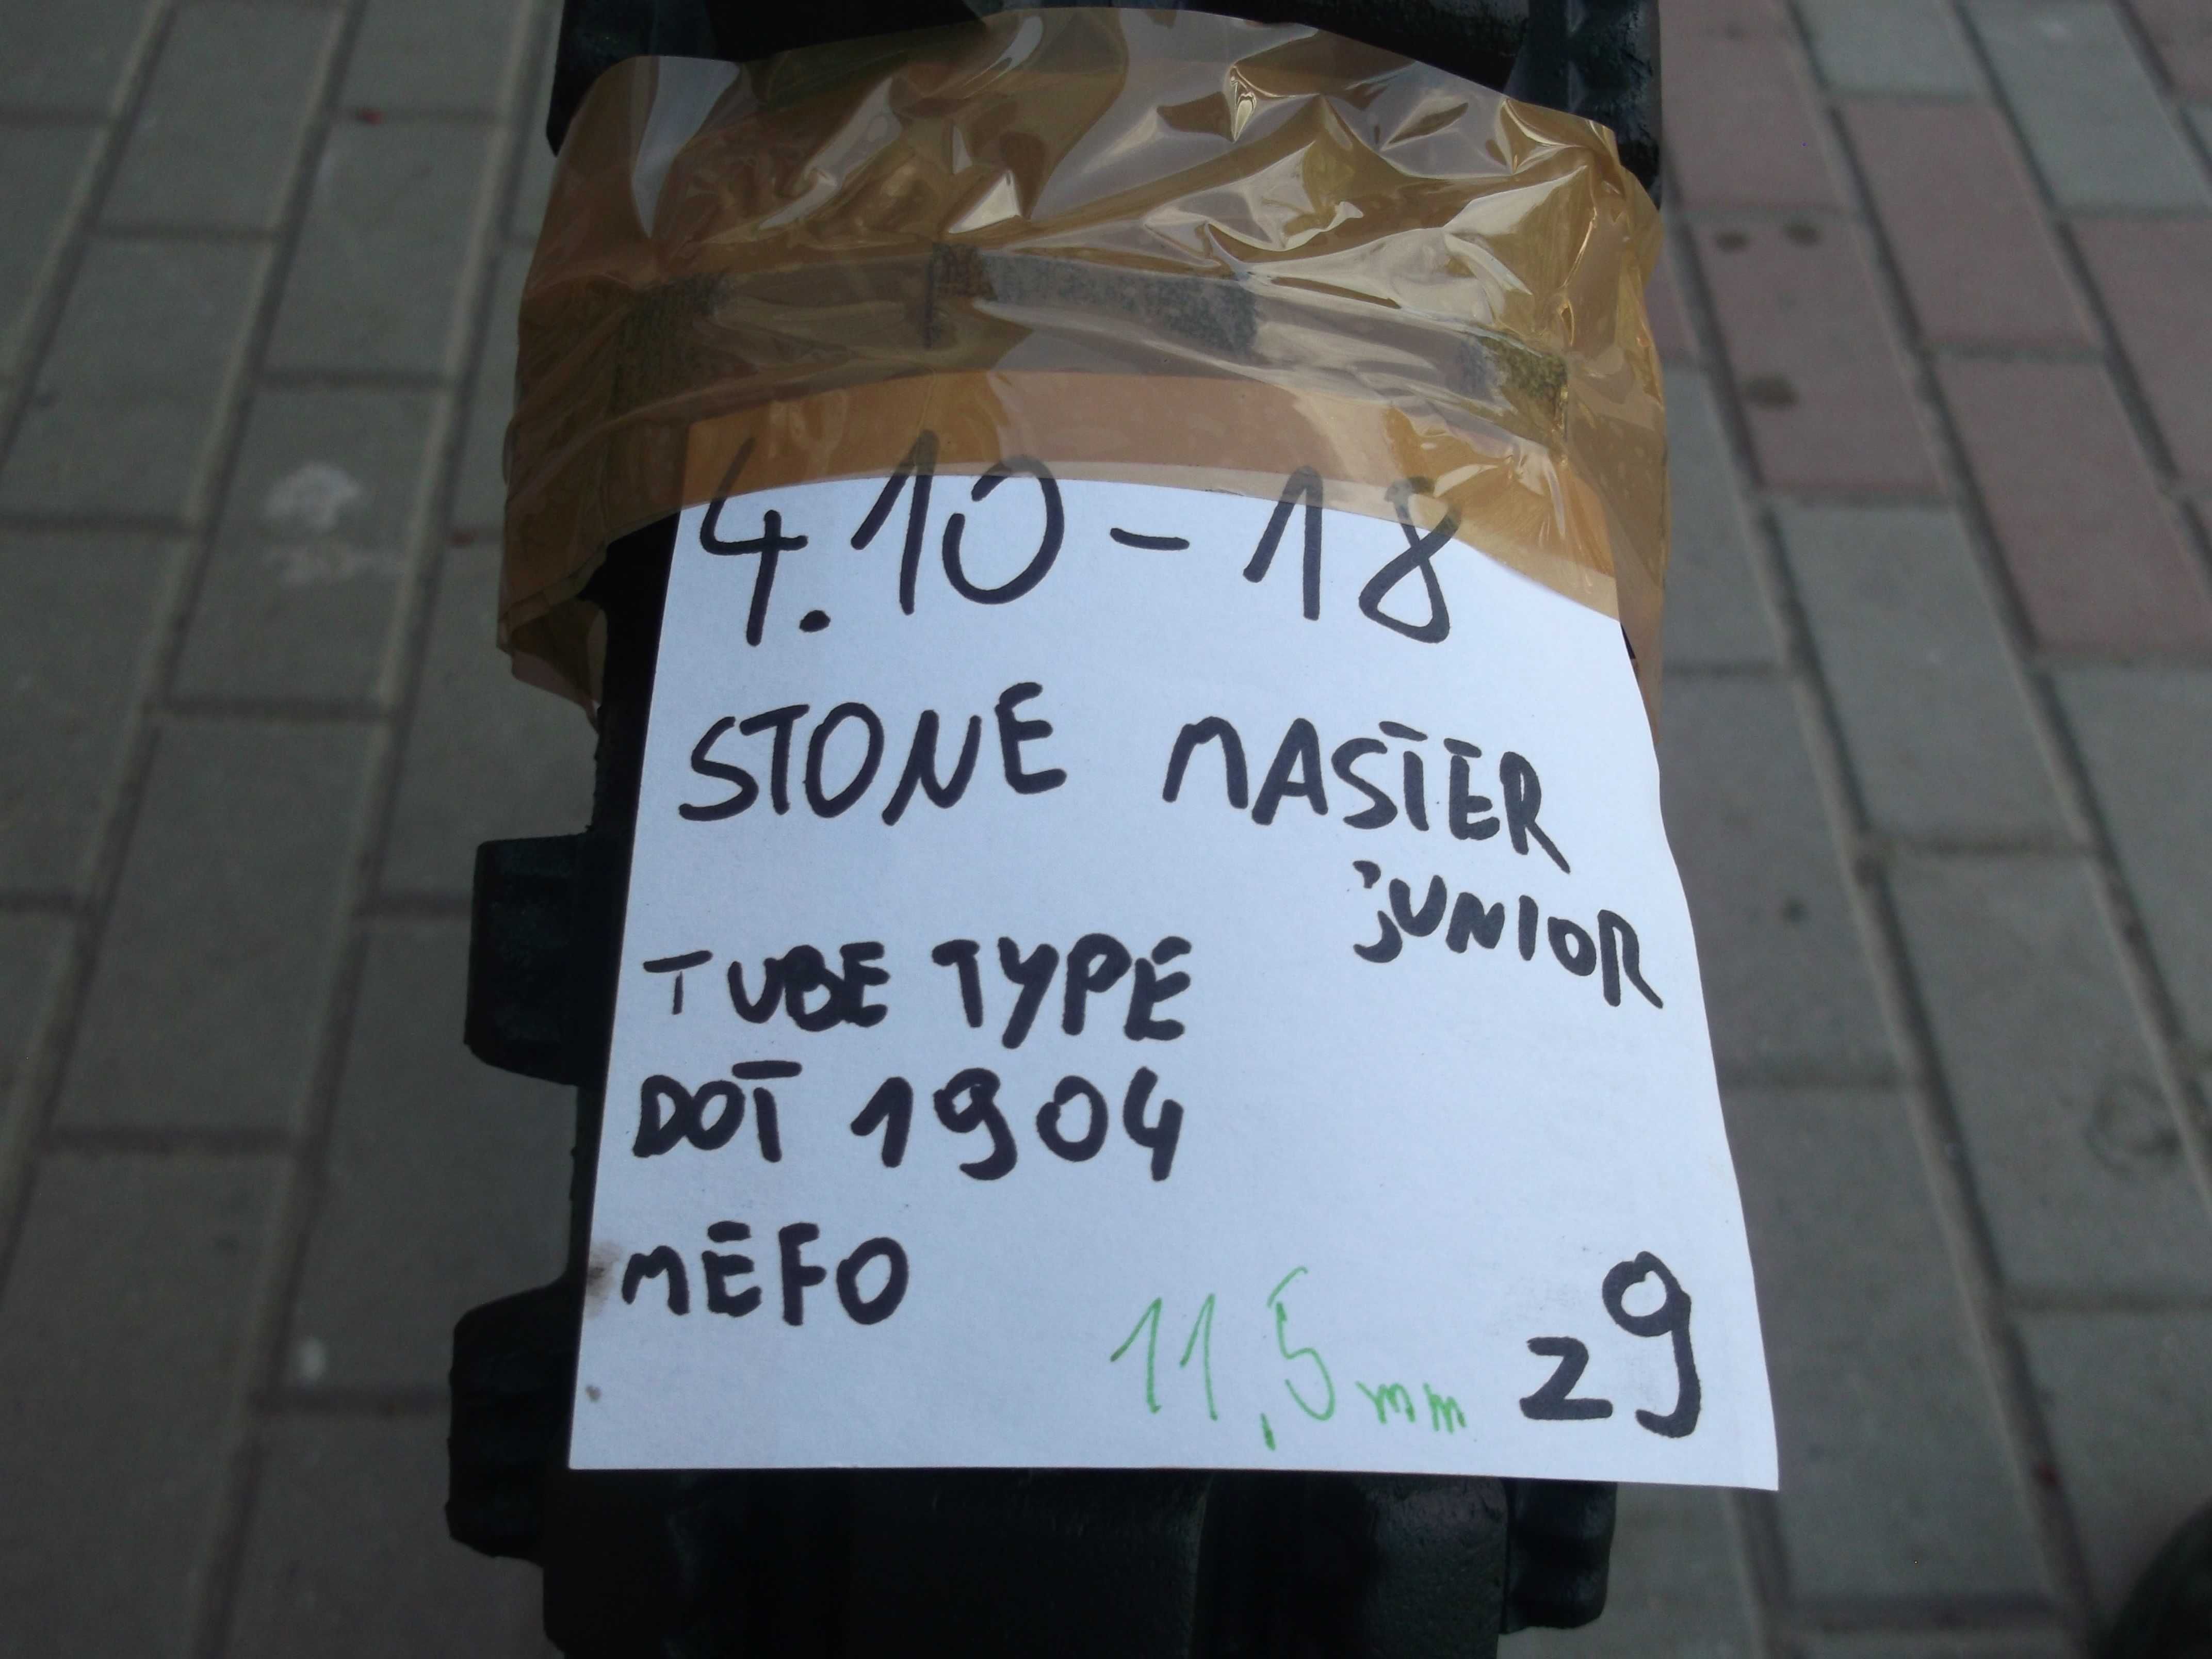 4.10-18
STONE MASTER
jUNIOR
TUBE TYPE
DOT 1904
MEFO
11,5 mm
29